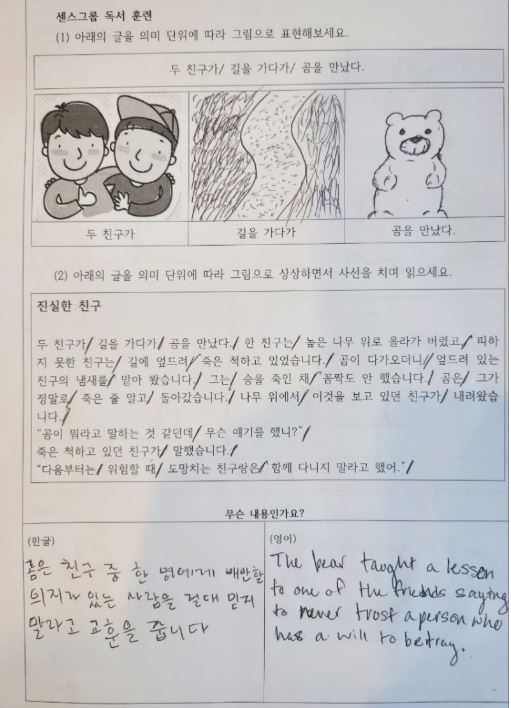 센스그룹 독서 훈련
(1) 아래의 글을 의미 단위에 따라 그림으로 표현해보세요.
두 친구가/ 길을 가다가/ 곰을 만났다.
두 친구가
길을 가다가
곰을 만났다.
(2) 아래의 글을 의미 단위에 따라 그림으로 상상하면서 사선을 치며 읽으세요.
진실한 친구
두 친구가/ 길을 가다가/ 곰을 만났다./ 한 친구는/ 높은 나무 위로 올라가 버렸고,/ 피하
지 못한 친구는/ 길에 엎드려/ 죽은 척하고 있었습니다./ 곰이 다가오더니/ 엎드려 있는
친구의 냄새를/ 맡아 봤습니다./ 그는/ 숨을 죽인 채/ 꼼짝도 안 했습니다./ 곰은/ 그가
정말로/ 죽은 줄 알고/ 돌아갔습니다./ 나무 위에서/ 이것을 보고 있던 친구가/ 내려왔습
니다./
"곰이 뭐라고 말하는 것 같던데/ 무슨 얘기를 했니?"/
죽은 척하고 있던 친구가/ 말했습니다.
"다음부터는/ 위험할 때/ 도망치는 친구랑은/ 함께 다니지 말라고 했어."/
무슨 내용인가요?
(한글)
곰은 친구 중 한 명에게 배반할
의지가 있는 사람을 절대 믿지
말라고 교훈을 줍니다
(영어)
The bear taught a lesson
to one of the friends saying
to never trust a person who
has a will to betray.